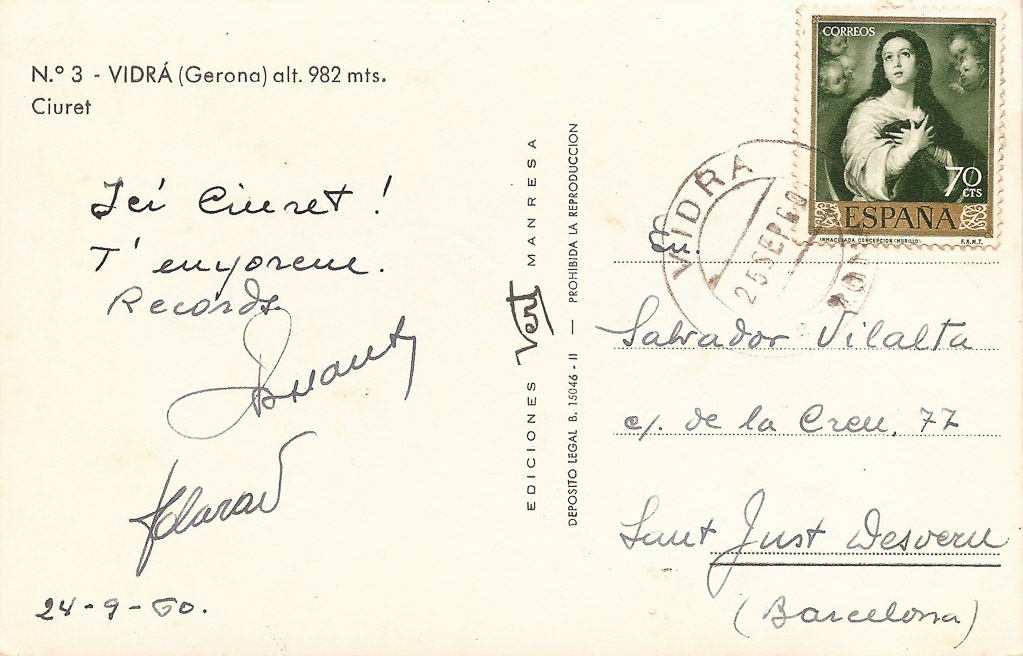 N.º 3 - VIDRÁ (Gerona) alt. 982 mts.
Ciuret
Ici Ciuret!
T'enyorem.
Records
24-9-60.
EDICIONES Vert MANRESA
DEPOSITO LEGAL B. 15046 - II — PROHIBIDA LA REPRODUCCION
CORREOS
70
CTS
ESPAÑA
INMACULADA CONCEPCION (MURILLO) F.N.M.T.
VIDRA
25 SEP 60
En.
Salvador Vilalta
c/. de la Creu, 77
Sant Just Desvern
(Barcelona)